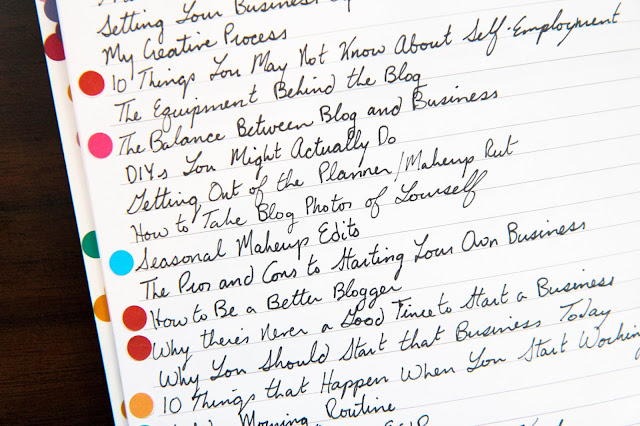 Setting Your Business
My Creative Process
10 Things You May Not Know About Self-Employment
The Equipment Behind the Blog
The Balance Between Blog and Business
DIYs You Might Actually Do
Getting Out of the Planner/Makeup Rut
How to Take Blog Photos of Yourself
Seasonal Makeup Edits
The Pros and Cons to Starting Your Own Business
How to Be a Better Blogger
Why there's Never a Good Time to Start a Business
Why You Should Start that Business Today
10 Things that Happen When You Start Workin
Morning Routine